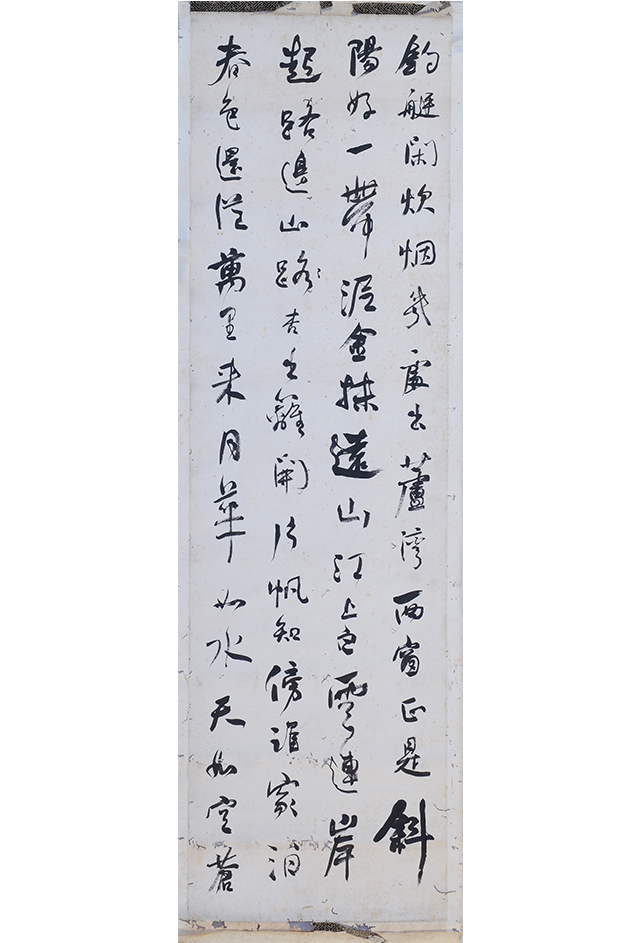 釣艇閑炊烟幾處出蘆湾西窗正是斜
陽好一帶泥金抹遠山江上雲連岸
起路邊山路籬開片帆知傍誰家泊
春色還從萬里來月華如水天如空蒼